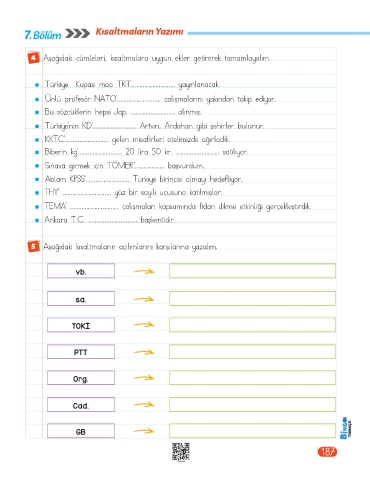 7.Bölüm Kısaltmaların Yazımı
4 Aşağıdaki cümleleri, kısaltmalara uygun ekler getirerek tamamlayalım.
Türkiye Kupası maçı TRT'........................ yayınlanacak.
Ünlü profesör NATO'........................ çalışmalarını yakından takip ediyor.
Bu sözcüklerin hepsi Jap. ........................ alınmış.
Türkiye'nin KD'........................ Artvin, Ardahan gibi şehirler bulunur.
KKTC'........................ gelen misafirleri otelimizde ağırladık.
Biberin kg'........................ 20 lira 50 kr. ........................ satılıyor.
Sınava girmek için TÖMER'................ başvurdum.
Ablam KPSS'........................ Türkiye birincisi olmayı hedefliyor.
THY' ........................ yüz bir sayılı uçuşuna katılmışlar.
TEMA' ........................ çalışmaları kapsamında fidan dikme etkinliği gerçekleştirdik.
Ankara T.C. ........................ başkentidir.
5 Aşağıdaki kısaltmaların açılımlarını karşılarına yazalım.
vb.
sa.
TOKİ
PTT
Org.
Cad.
GB
BİNGO
TÜRKÇE
187